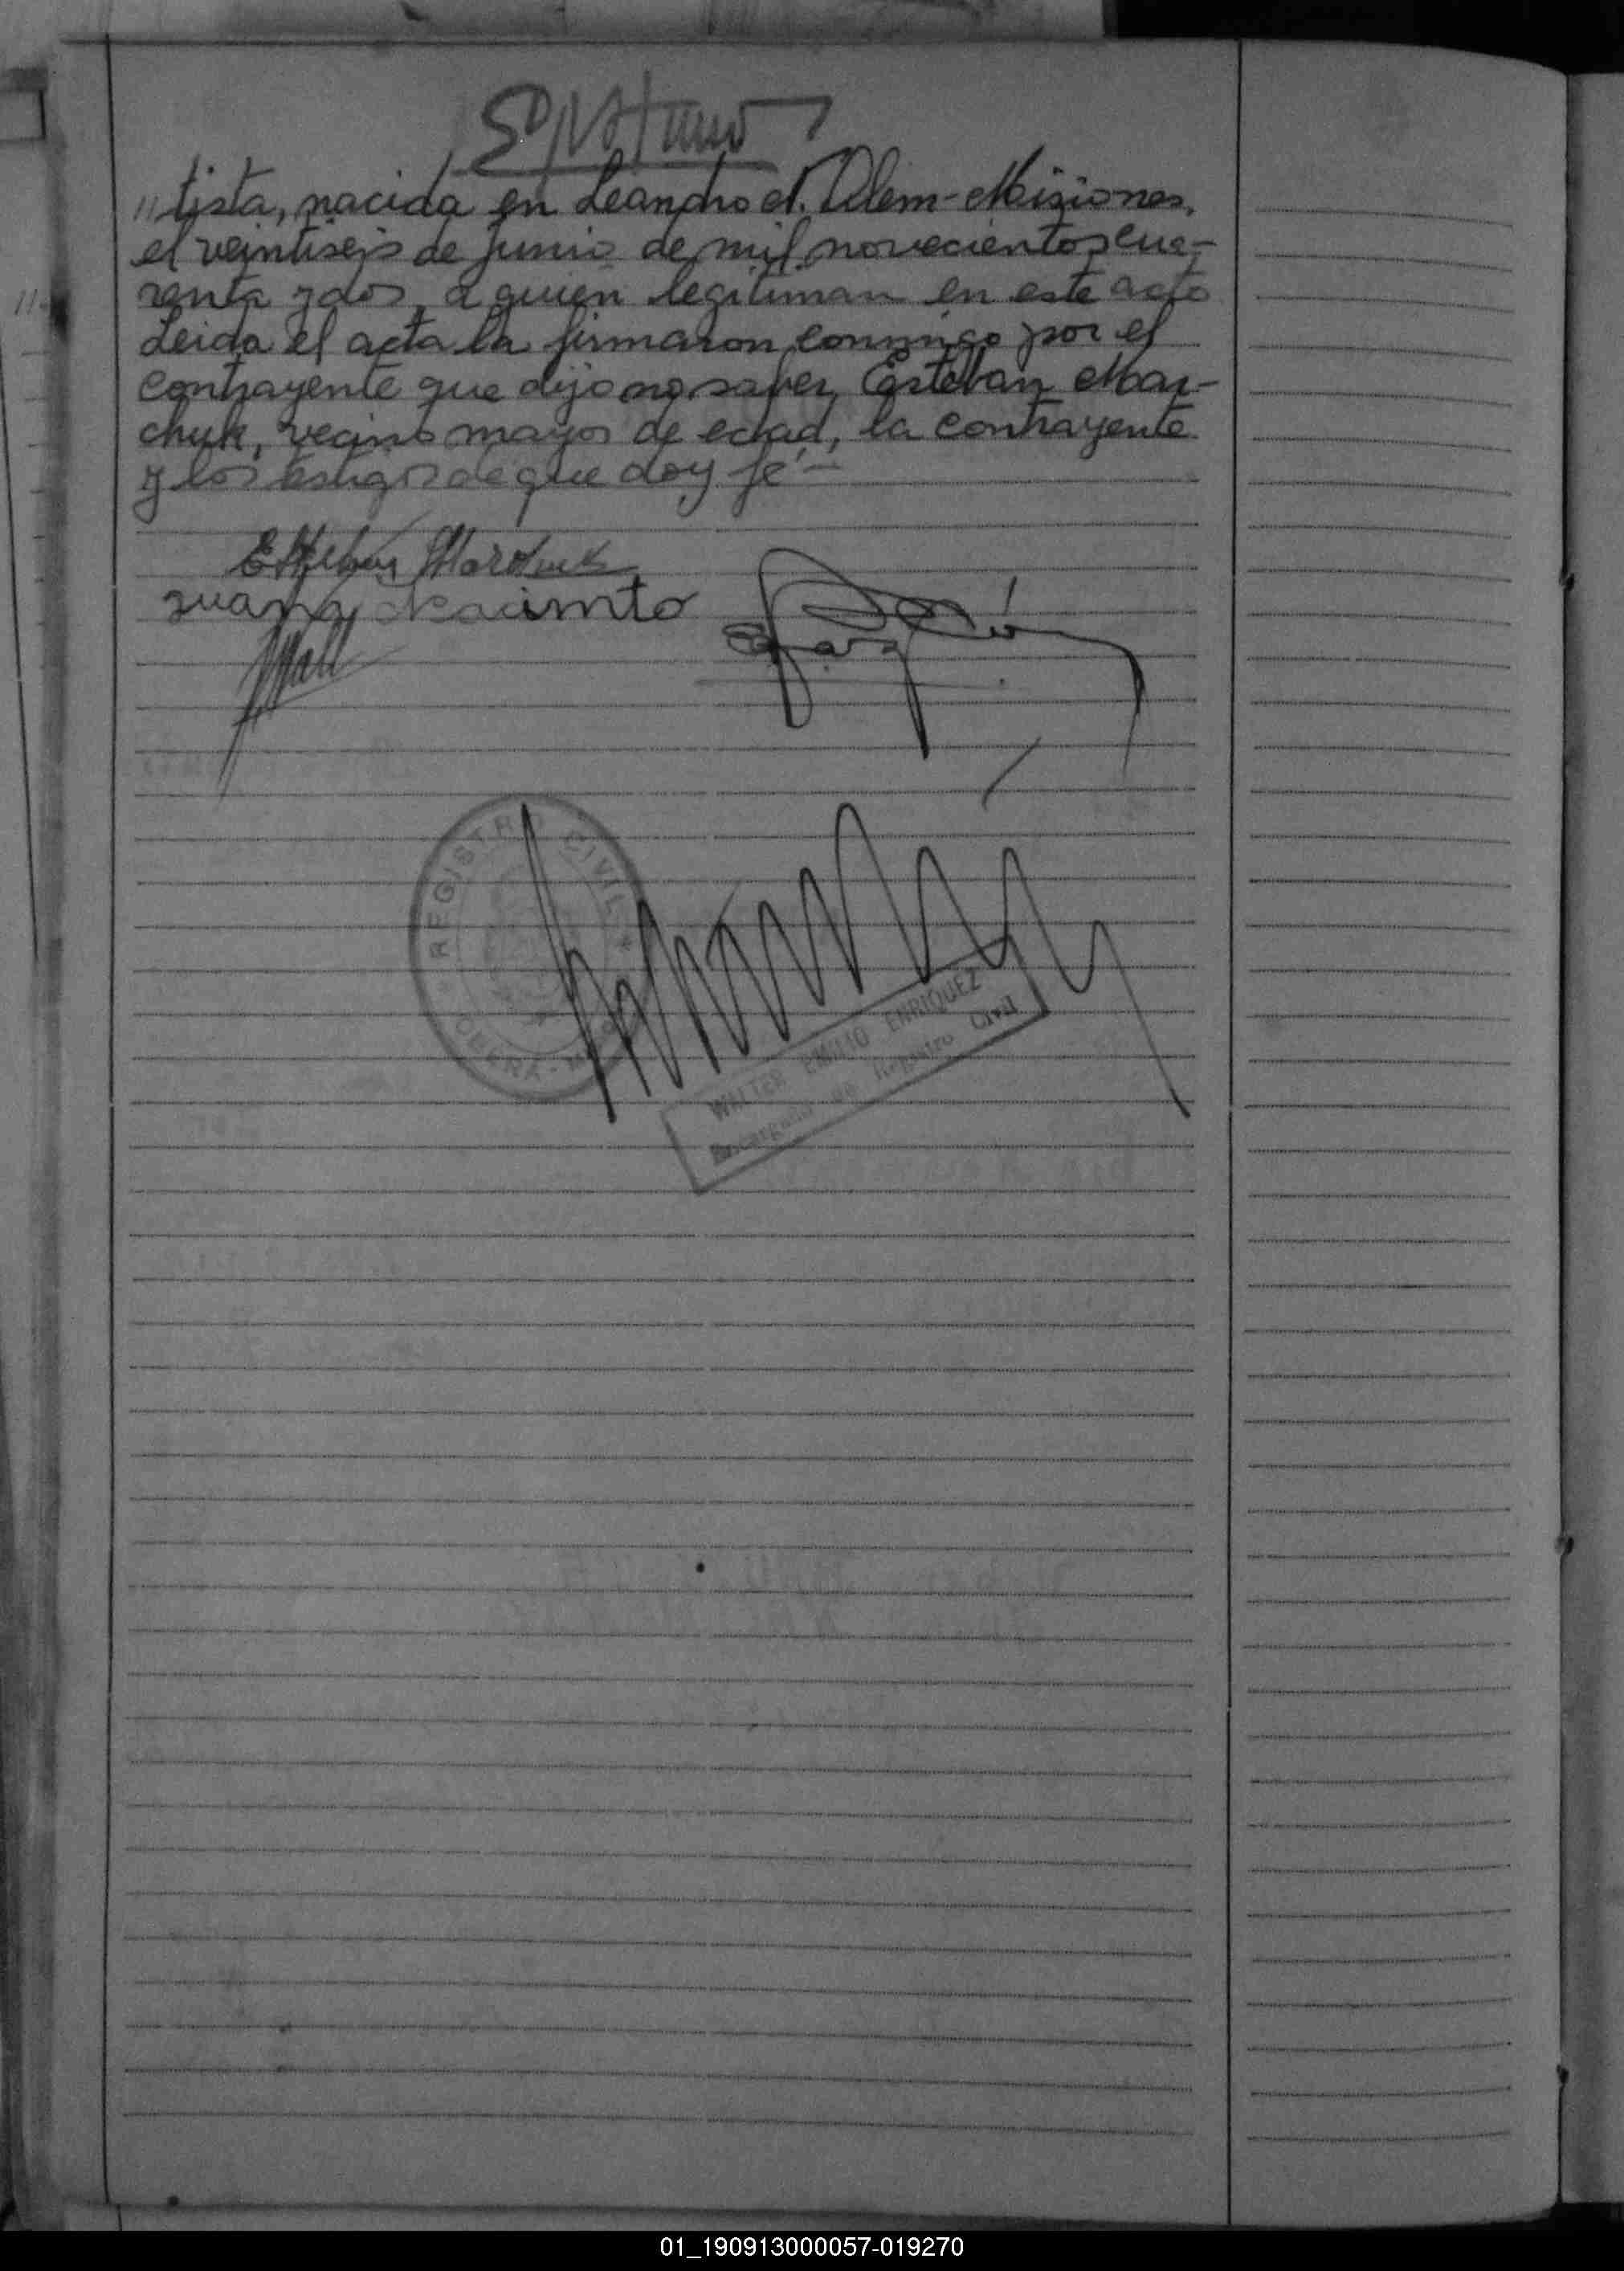 "tista, nacida en Leandro N. Alem-Misiones,
el veintiseis de Junio de mil novecientos cua-
renta y dos, a quien legitiman en este acto
Leida el acta la firmaron conmigo por el
contrayente que dijo no saber, Esteban Mar-
chuk, vecino mayor de edad, la contrayente
y los testigos de que doy fé-
Esteban Marchuk
Juana Nacimto
REGISTRO CIVIL
OBERA -
WALTER EMILIO ENRIQUEZ
Encargado de Registro Civil
01_190913000057-019270